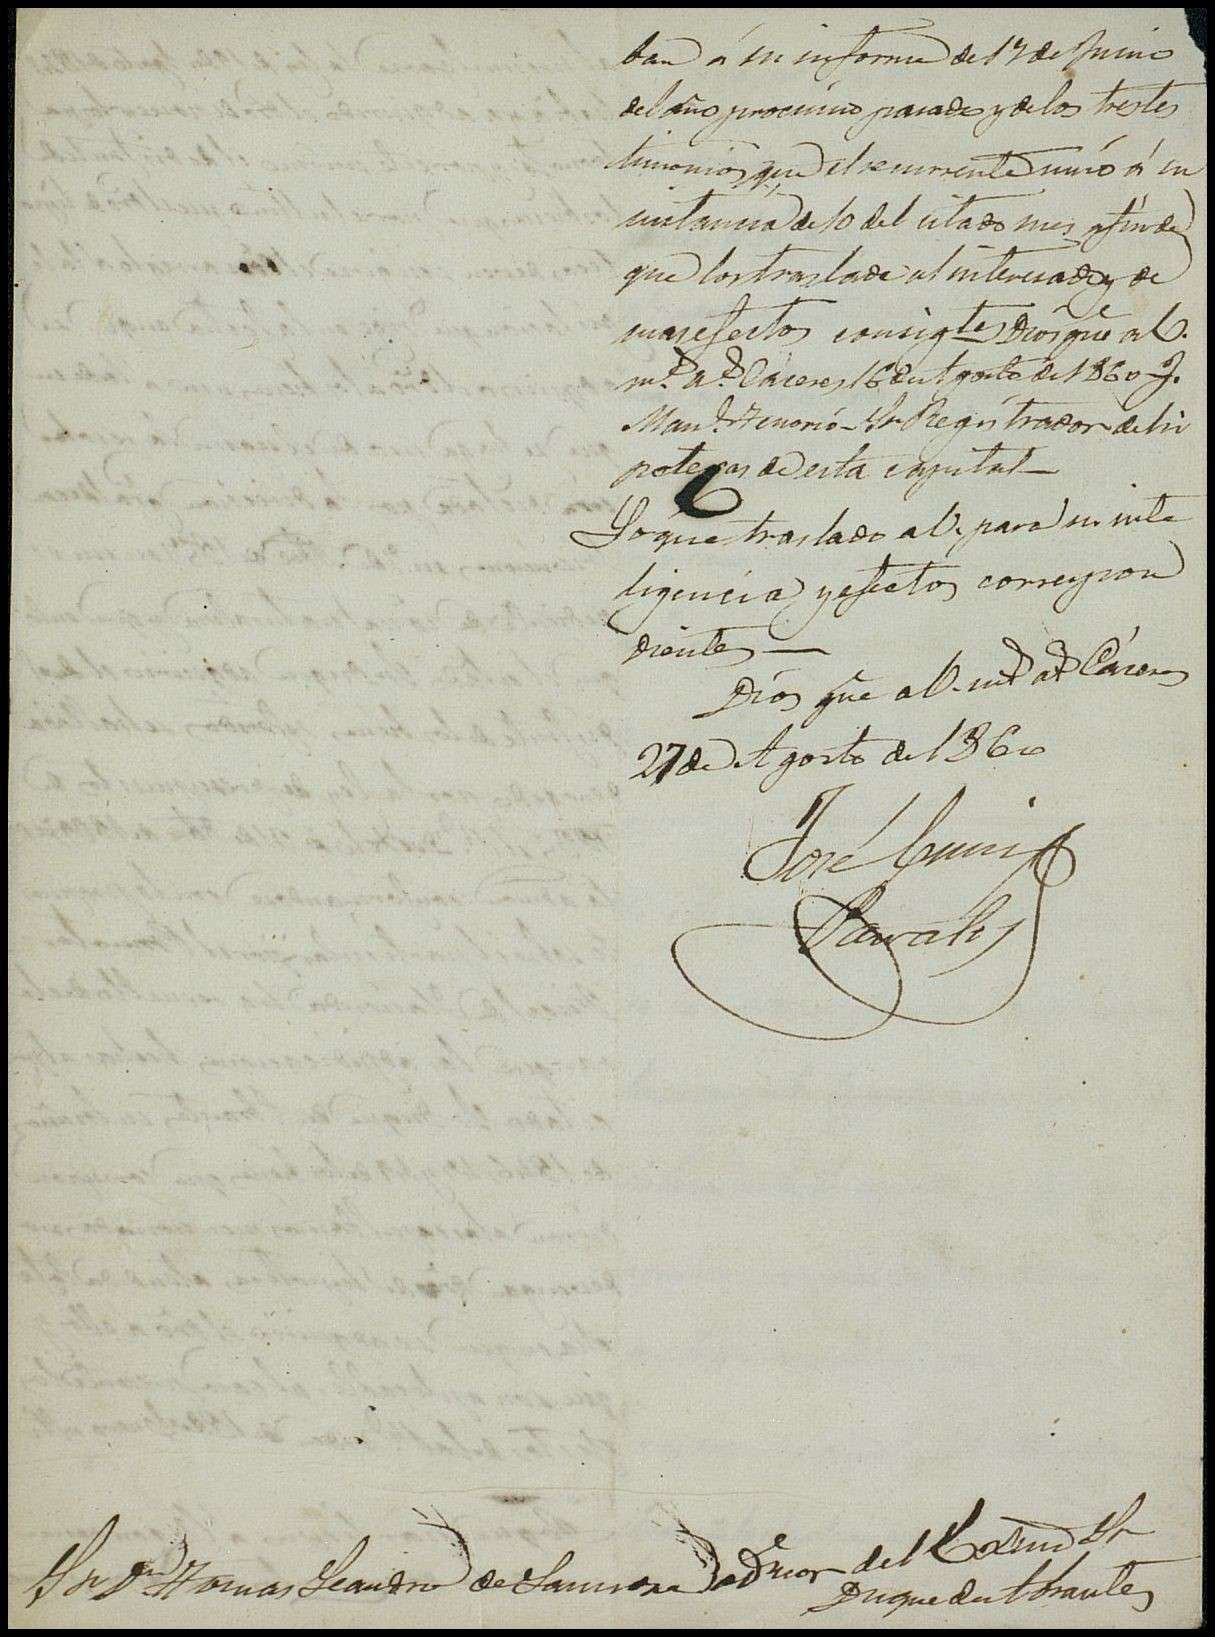 ban á su informe de 17 de Junio
del año procsimo pasado y de los tres tes
timonios, que el recurrente unió á su
instancia de 10 del citado mes, afin de
que los traslade al interesado y de
mas efectos consigtes Dios gue a V.
ms. as. Caceres 16 de Agosto de 1860. J.
Manl. Tenorio - Sr Registrador de hi
potecas de esta capital -
Lo que traslado a V. para su inte
ligencia y efectos correspon
dientes -
Dios gue a V. ms as Cáceres
27 de Agosto de 1860
José
Sr Dn Tomas Leandro de Ador del Exmo Sr
Duque de Abrantes